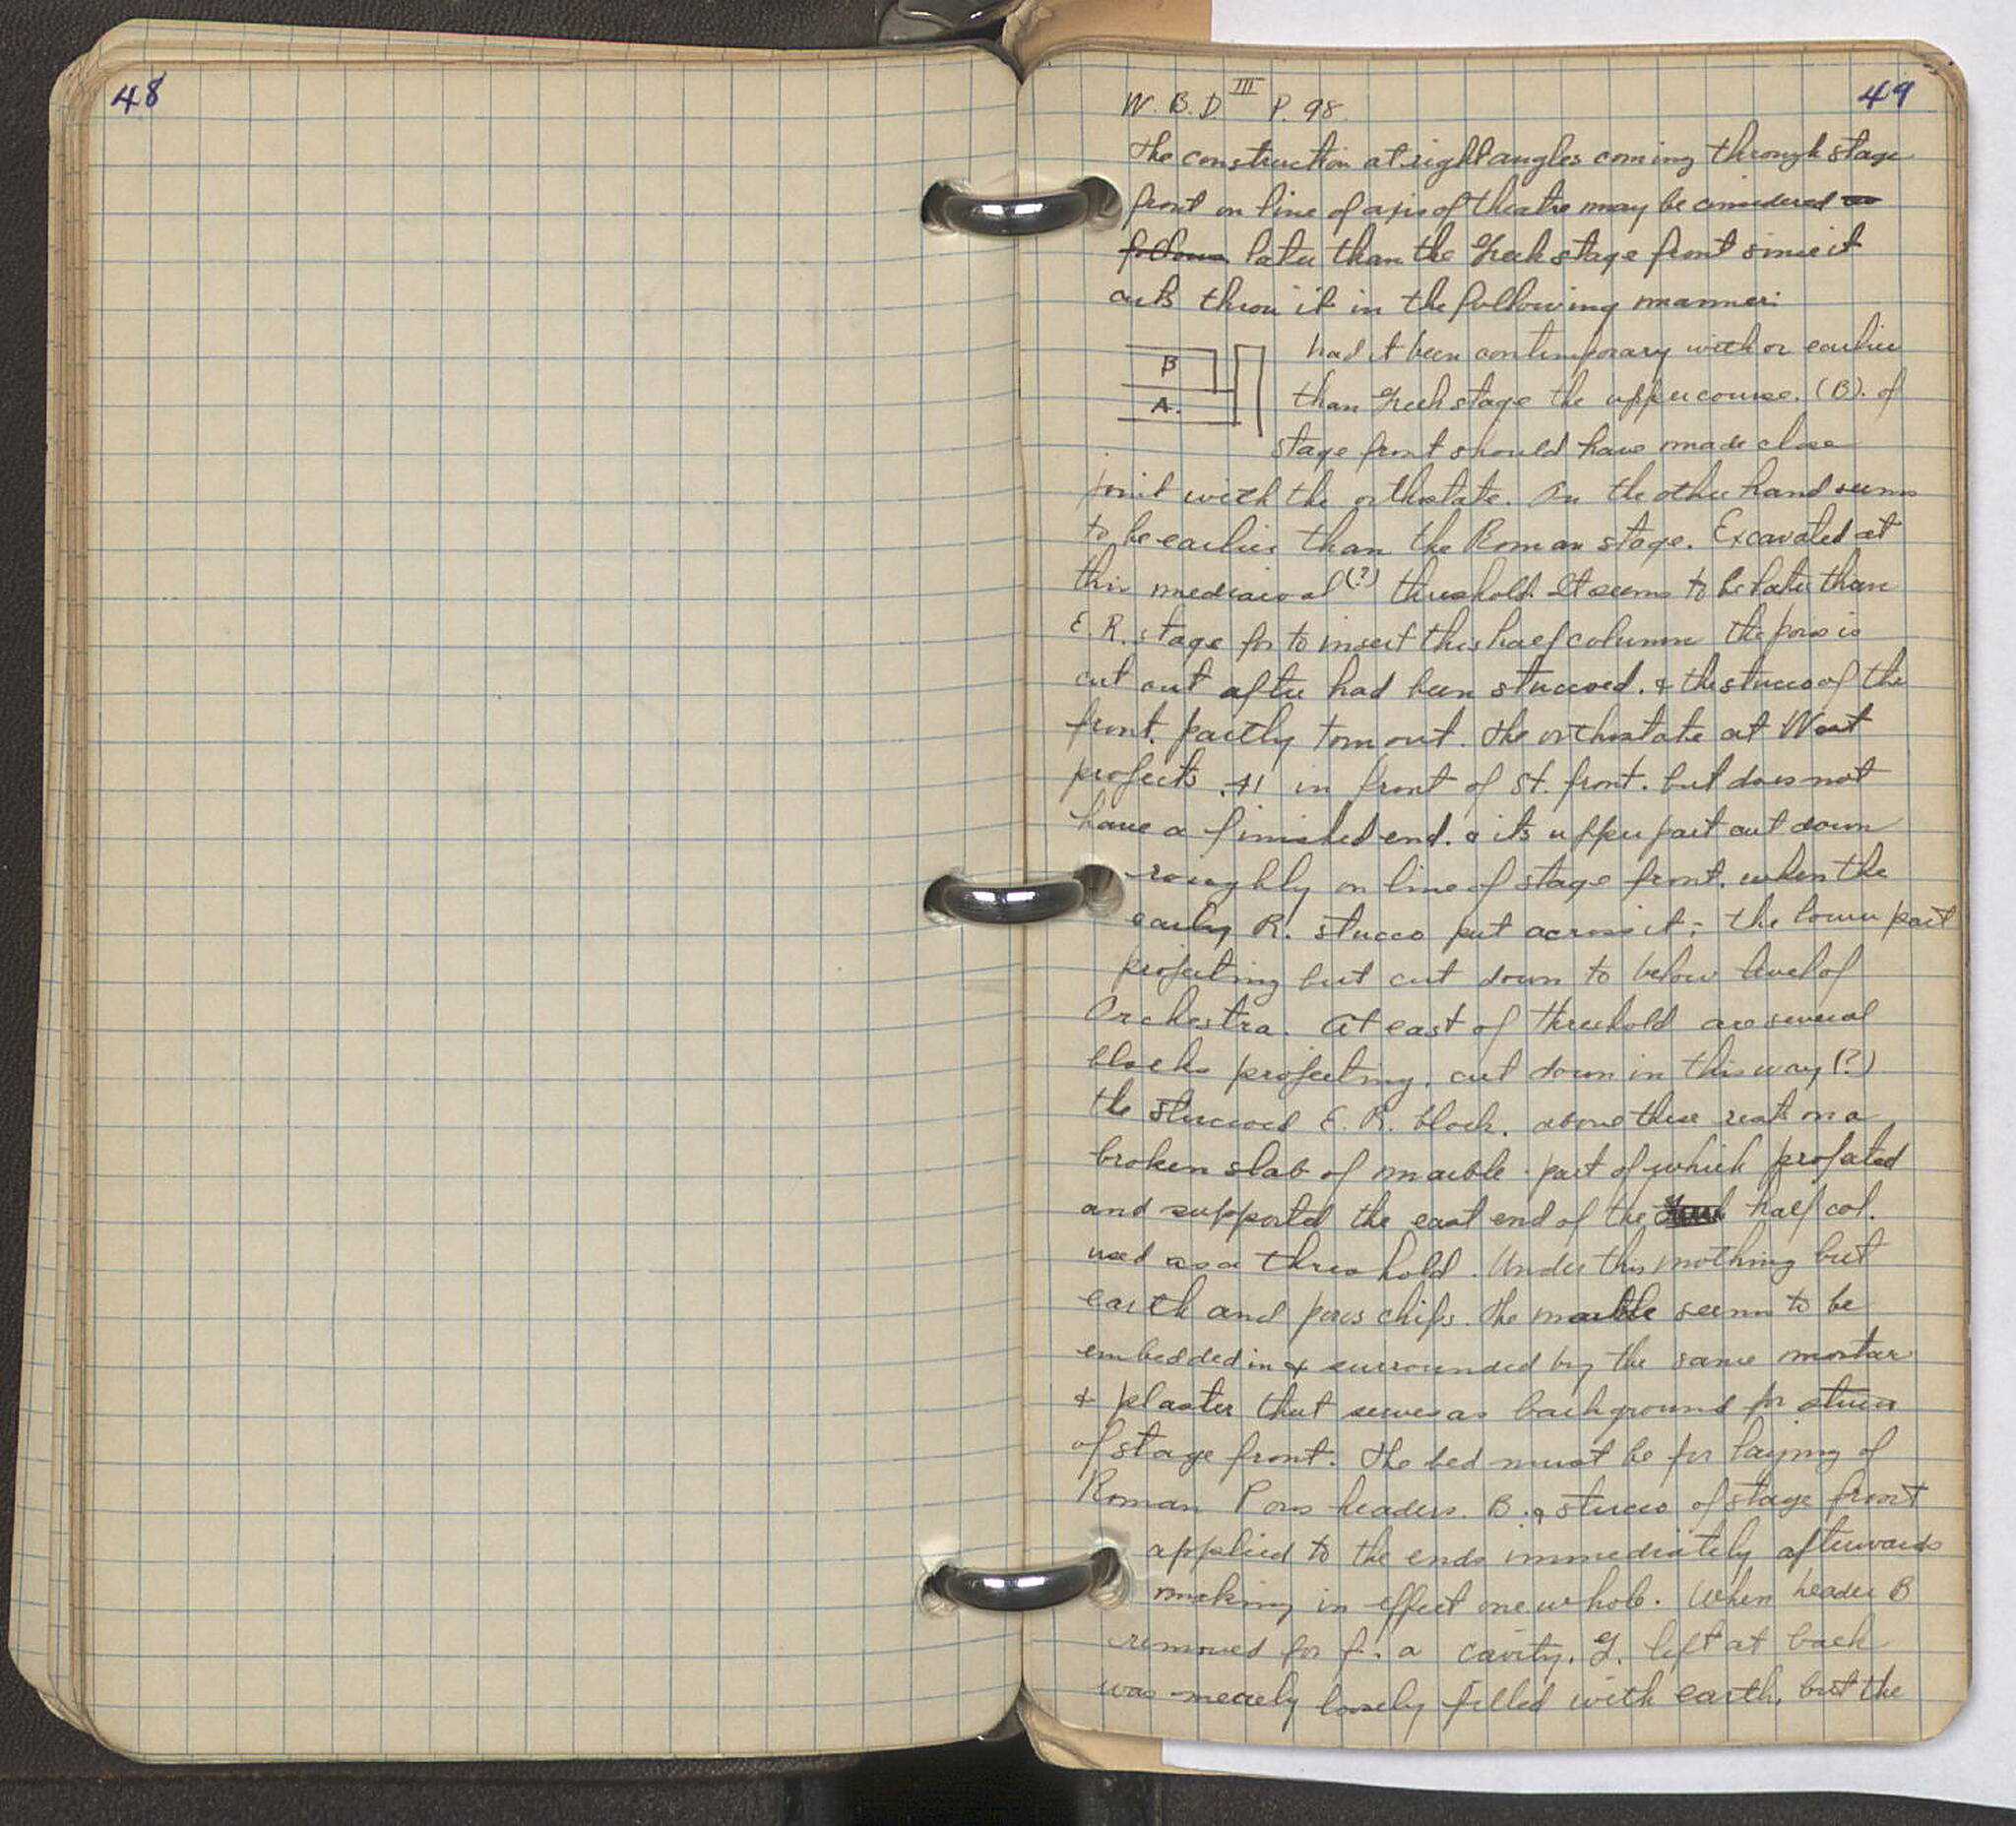 48
49
W. B. D III P. 98.
The construction at right angles coming through stage
front on line of axis of theatre may be considered as
follows later than the Greek stage front since it
cuts throu it in the following manner:
had it been contemporary with or earlier
B
than Greek stage the upper course. (B). of
A.
stage front should have made close
joint with the orthostate. On the other hand seems
to be earlier than the Roman stage. Excavated at
this mediaeval (?) threshold. It seems to be later than
E. R. stage for to insert this half column the poros is
cut out after had been stuccoed. & the stucco of the
front. partly torn out. The orthostate at West
projects .41 in front of St. front. but does not
have a finished end. & its upper part cut down
roughly on line of stage front. when the
early R. stucco put across it; the lower part
projecting but cut down to below level of
Orchestra. At east of threshold are several
blocks projecting. cut down in this way (?)
the stuccoed E. R. block. above these rests on a
broken slab of marble. part of which projected
and supported the east end of the half col.
used as a threshold. Under this nothing but
earth and poros chips. The marble seems to be
embedded in & surrounded by the same mortar
& plaster that serves as background for stucco
of stage front. The bed must be for laying of
Roman Poros headers. B. & stucco of stage front
applied to the ends immediately afterwards
making in effect one whole. When header B
removed for f. a cavity. G. left at back
was merely loosely filled with earth, but the